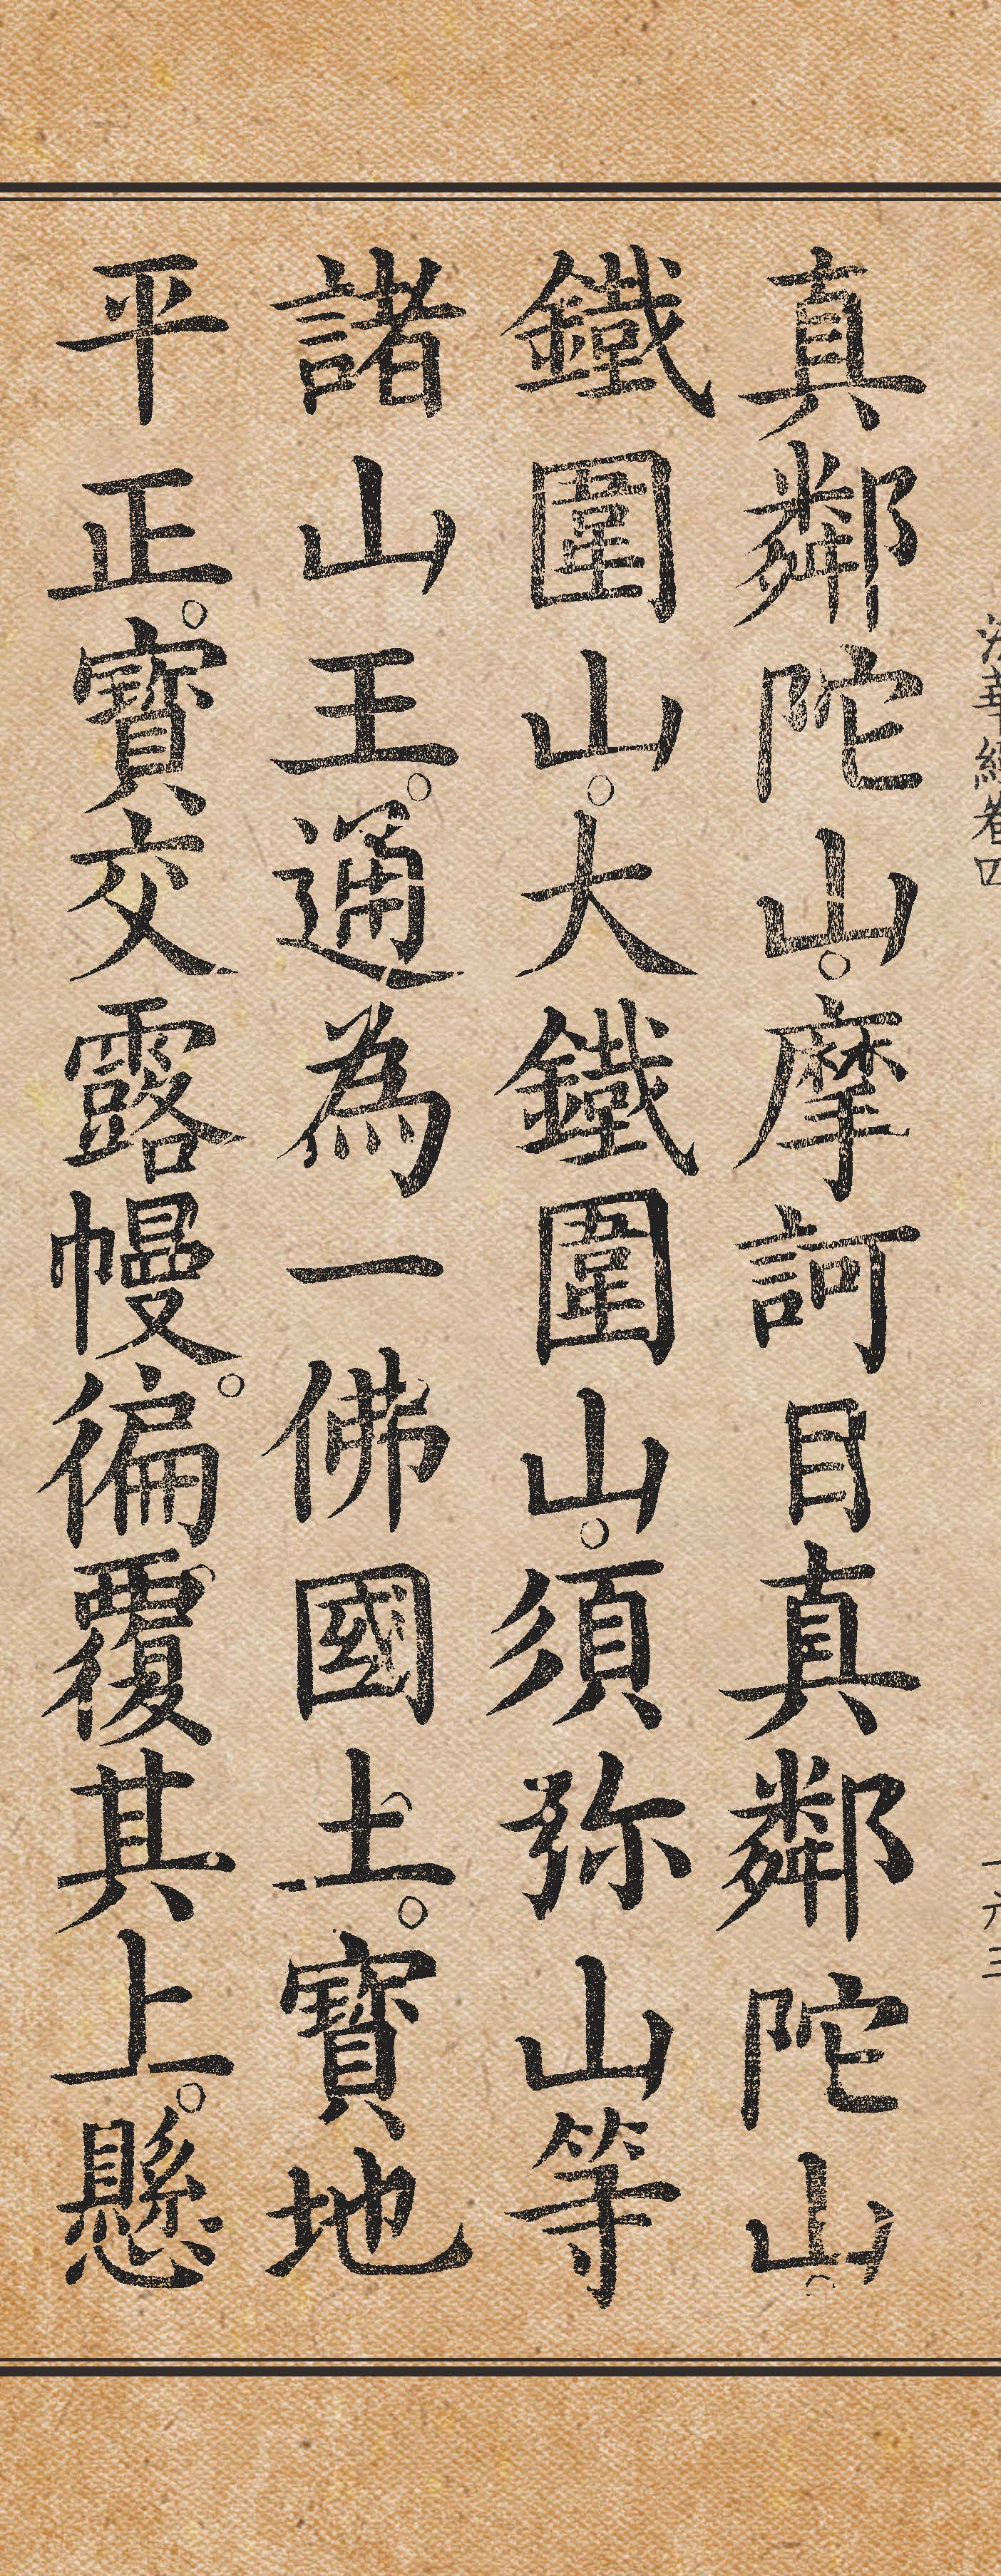 法華經卷四
真鄰陀山。摩訶目真鄰陀山。
鐵圍山。大鐵圍山。須弥山等
諸山王。通為一佛國土。寶地
平正。寶交露幔。徧覆其上。懸